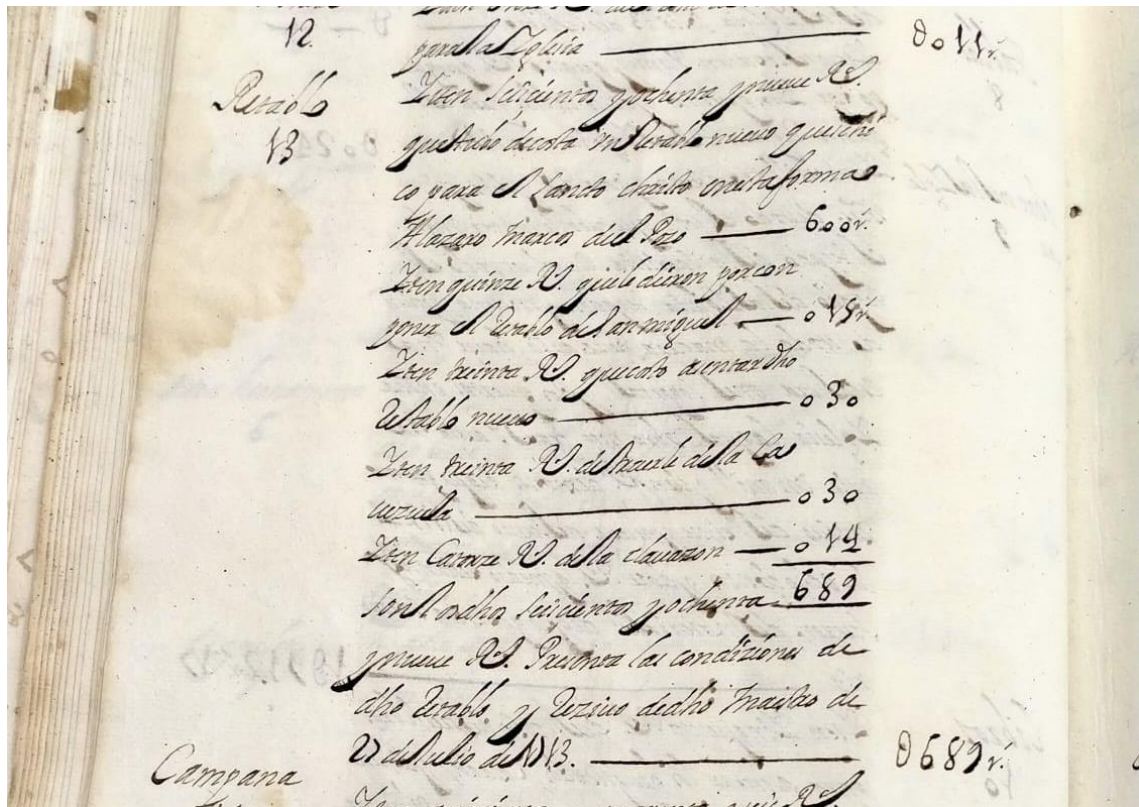 12.
para la Iglesia — 0011 r.s
Retablo
13
Iten seiscientos y ochenta y nueve R.s
que tubo de costa un Retablo nuevo que se hi
co para el Santo christo en esta forma
A lazaro marcos del Pozo — 600 r.s
Iten quinze R.s que le dieron por con
poner el Retablo de san miguel — 015 r.s
Iten treinta R.s que costo asentar dho
Retablo nuevo — 030
Iten treinta R.s de traerle de la Ca
uezuela — 030
Iten Catorze R.s de la clauazon — 014
689
son los dhos seiscientos y ochenta
y nueve R.s Presento las condiziones de
dho Retablo y Reziuo de dho maestro de
27 de Julio de 1713. — 0689 r.s
Campana